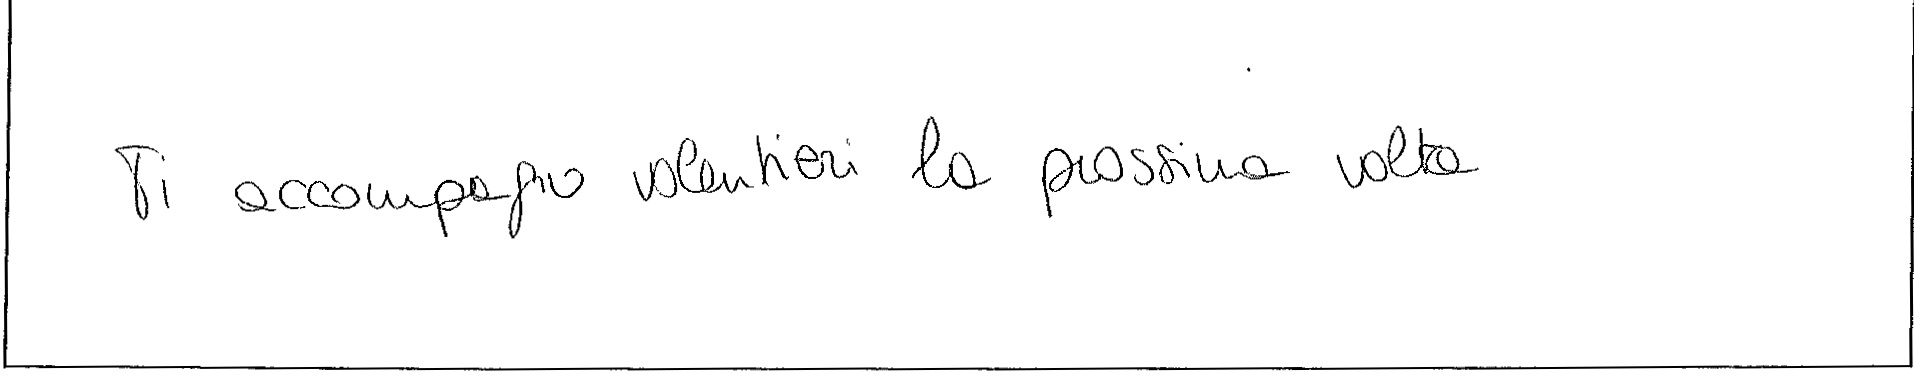 Ti accompagno volentieri la prossima volta